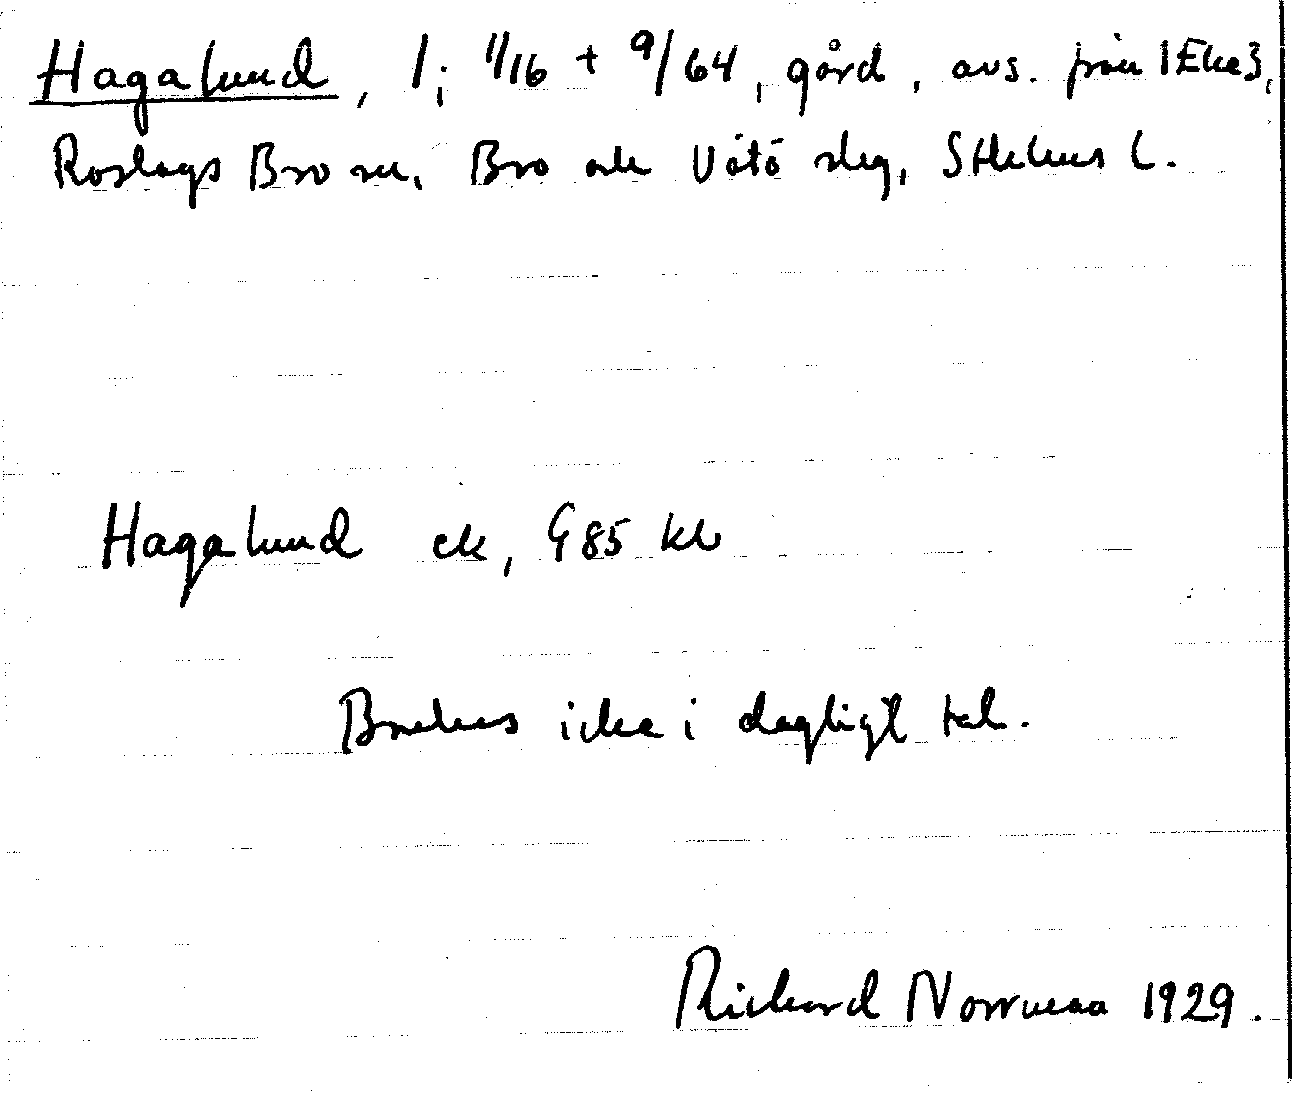 Hagalund, 1; 1/16 + 9/64, gård, avs. från 1 Eke 3,
Roslags Bro sn, Bro och Vätö slg, Sthlms l.
Hagalund ek, G 85 kb
Brukas icke i dagligt tal.
Richard Norrman 1929.